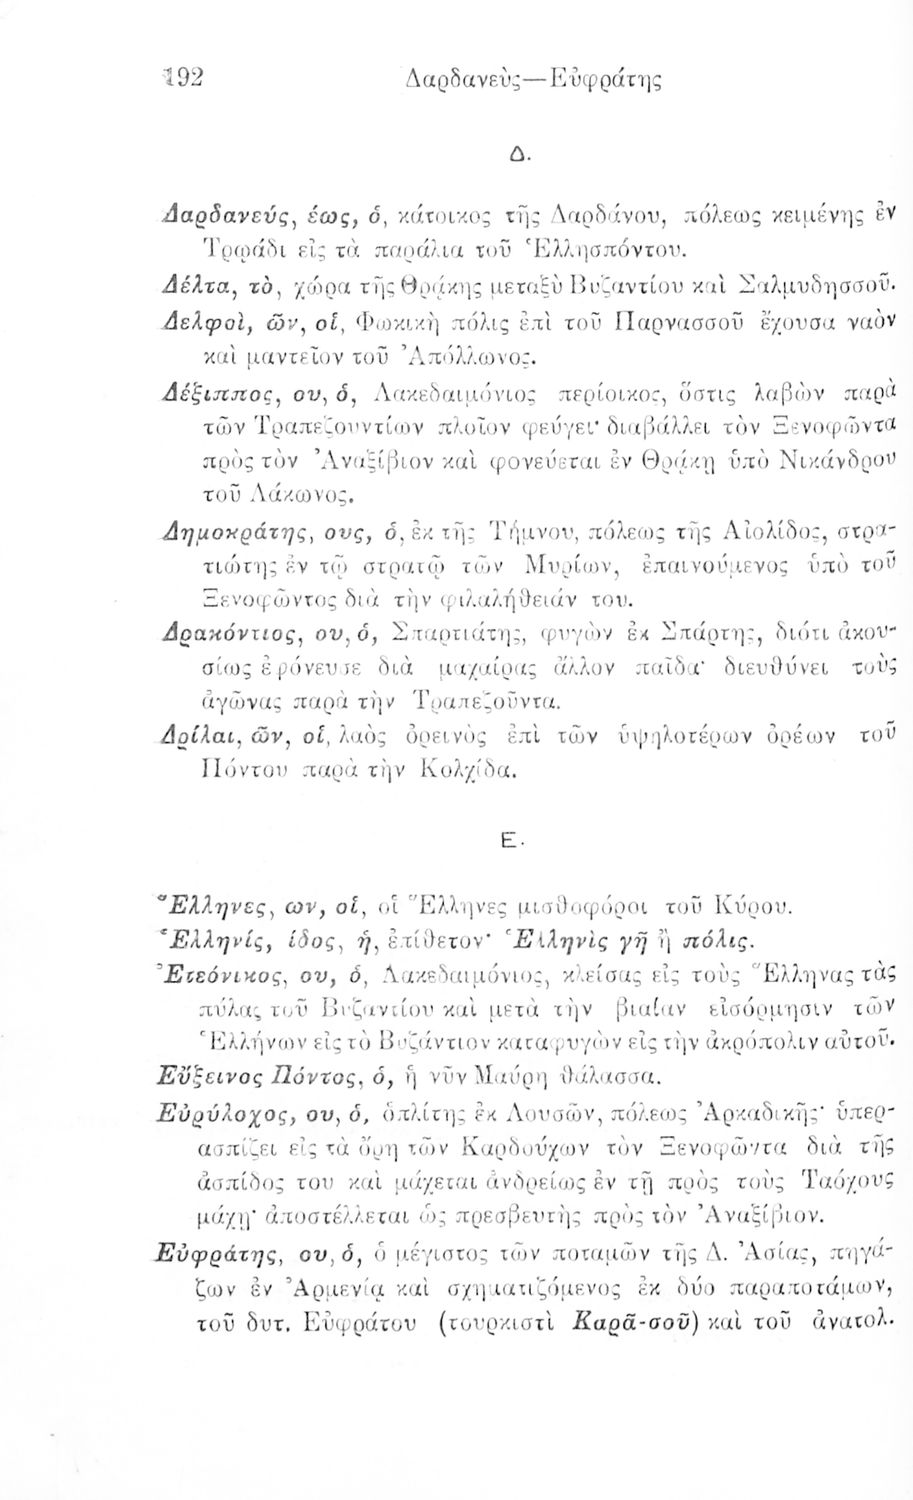 192 Δαρδανεὺς—Εὐφράτης
Δ.
Δαρδανεύς, έως, ὁ, κάτοικος τῆς Δαρδάνου, πόλεως κειμένης ἐν
Τρῳάδι εἰς τὰ παράλια τοῦ Ἑλλησπόντου.
Δέλτα, τὸ, χώρα τῆς Θρᾴκης μεταξὺ Βυζαντίου καὶ Σαλμυδησσοῦ.
Δελφοὶ, ῶν, οἱ, Φωκικὴ πόλις ἐπὶ τοῦ Παρνασσοῦ ἔχουσα ναὸν
καὶ μαντεῖον τοῦ Ἀπόλλωνος.
Δέξιππος, ου, ὁ, Λακεδαιμόνιος περίοικος, ὅστις λαβὼν παρὰ
τῶν Τραπεζουντίων πλοῖον φεύγει· διαβάλλει τὸν Ξενοφῶντα
πρὸς τὸν Ἀναξίβιον καὶ φονεύεται ἐν Θρᾴκῃ ὑπὸ Νικάνδρου
τοῦ Λάκωνος.
Δημοκράτης, ους, ὁ, ἐκ τῆς Τήμνου, πόλεως τῆς Αἰολίδος, στρα-
τιώτης ἐν τῷ στρατῷ τῶν Μυρίων, ἐπαινούμενος ὑπὸ τοῦ
Ξενοφῶντος διὰ τὴν φιλαλήθειάν του.
Δρακόντιος, ου, ὁ, Σπαρτιάτης, φυγὼν ἐκ Σπάρτης, διότι ἀκου-
σίως ἐφόνευσε διὰ μαχαίρας ἄλλον παῖδα· διευθύνει τοὺς
ἀγῶνας παρὰ τὴν Τραπεζοῦντα.
Δρίλαι, ῶν, οἱ, λαὸς ὀρεινὸς ἐπὶ τῶν ὑψηλοτέρων ὀρέων τοῦ
Πόντου παρὰ τὴν Κολχίδα.
Ε.
Ἕλληνες, ων, οἱ, οἱ Ἕλληνες μισθοφόροι τοῦ Κύρου.
Ἑλληνίς, ίδος, ἡ, ἐπίθετον· Ἑλληνὶς γῆ ἢ πόλις.
Ἐτεόνικος, ου, ὁ, Λακεδαιμόνιος, κλείσας εἰς τοὺς Ἕλληνας τὰς
πύλας τοῦ Βυζαντίου καὶ μετὰ τὴν βιαίαν εἰσόρμησιν τῶν
Ἑλλήνων εἰς τὸ Βυζάντιον καταφυγὼν εἰς τὴν ἀκρόπολιν αὐτοῦ.
Εὔξεινος Πόντος, ὁ, ἡ νῦν Μαύρη θάλασσα.
Εὐρύλοχος, ου, ὁ, ὁπλίτης ἐκ Λουσῶν, πόλεως Ἀρκαδικῆς· ὑπερ-
ασπίζει εἰς τὰ ὄρη τῶν Καρδούχων τὸν Ξενοφῶντα διὰ τῆς
ἀσπίδος του καὶ μάχεται ἀνδρείως ἐν τῇ πρὸς τοὺς Ταόχους
μάχῃ· ἀποστέλλεται ὡς πρεσβευτὴς πρὸς τὸν Ἀναξίβιον.
Εὐφράτης, ου, ὁ, ὁ μέγιστος τῶν ποταμῶν τῆς Δ. Ἀσίας, πηγά-
ζων ἐν Ἀρμενίᾳ καὶ σχηματιζόμενος ἐκ δύο παραποτάμων,
τοῦ δυτ. Εὐφράτου (τουρκιστὶ Καρᾶ-σοῦ) καὶ τοῦ ἀνατολ.